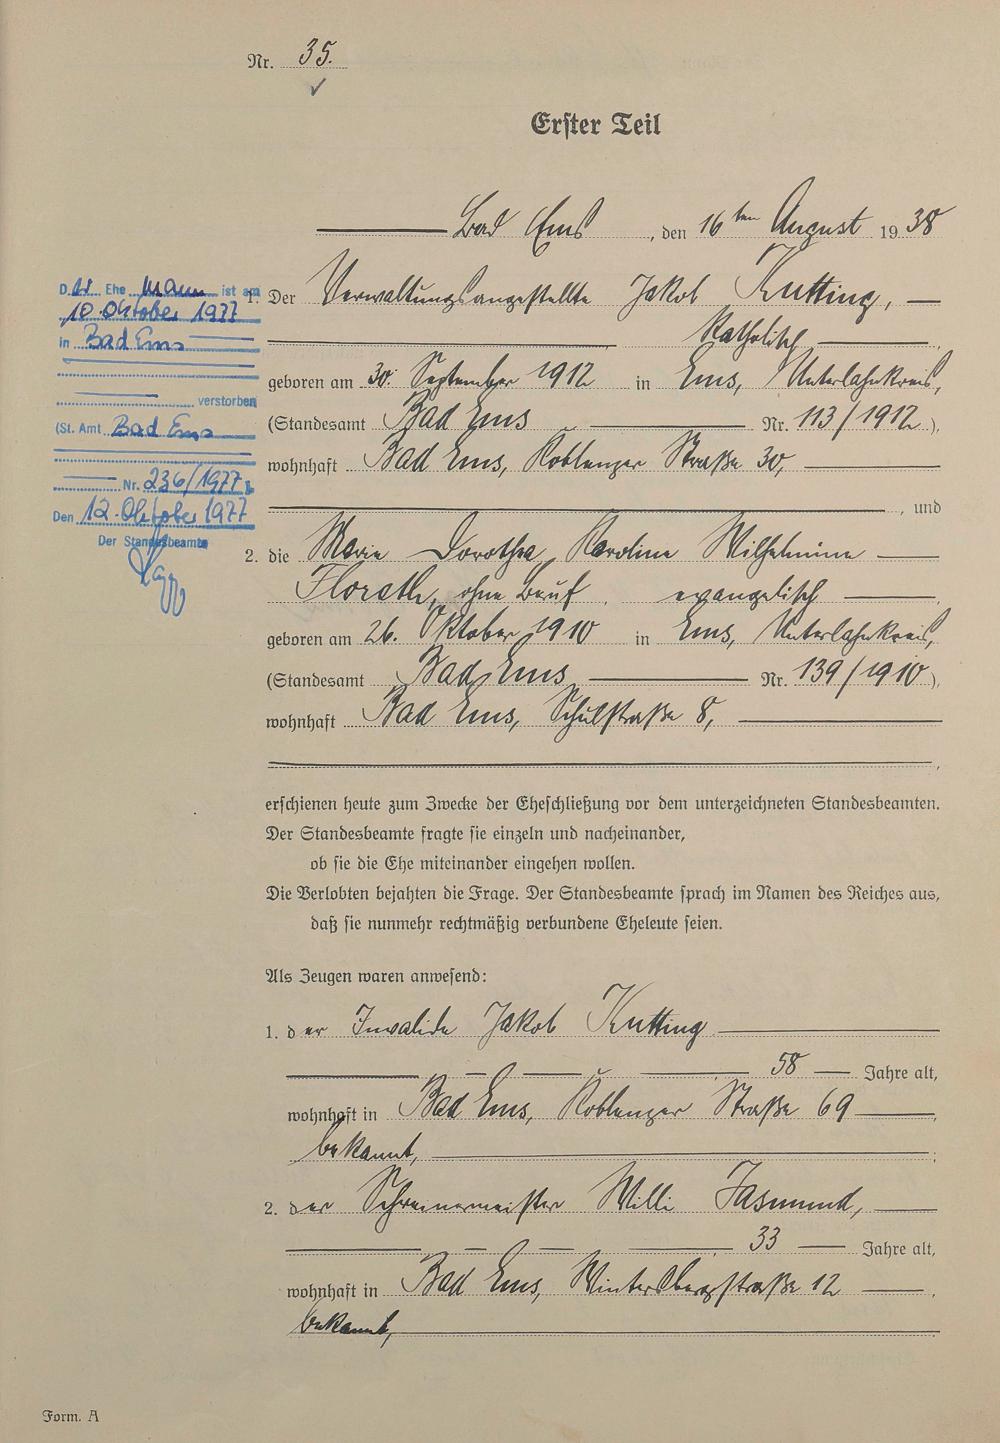 Nr. 35.
Erster Teil
Bad Ems, den 16ten August 1938
1. Der Verwaltungsangestellte Jakob Kutting,
katholisch,
geboren am 30. September 1912 in Ems, Unterlahnkreis,
(Standesamt Bad Ems Nr. 113/1912),
wohnhaft Bad Ems, Koblenzer Straße 30,
, und
2. die Marie Dorothea Karoline Wilhelmine
Florath, ohne Beruf, evangelisch,
geboren am 26. Oktober 1910 in Ems, Unterlahnkreis,
(Standesamt Bad Ems Nr. 139/1910),
wohnhaft Bad Ems, Schulstraße 8,
erschienen heute zum Zwecke der Eheschließung vor dem unterzeichneten Standesbeamten.
Der Standesbeamte fragte sie einzeln und nacheinander,
ob sie die Ehe miteinander eingehen wollen.
Die Verlobten bejahten die Frage. Der Standesbeamte sprach im Namen des Reiches aus,
daß sie nunmehr rechtmäßig verbundene Eheleute seien.
Als Zeugen waren anwesend:
1. der Invalide Jakob Kutting
58 Jahre alt,
wohnhaft in Bad Ems, Koblenzer Straße 69,
bekannt, ;
2. der Schreinermeister Willi Jasmund,
33 Jahre alt,
wohnhaft in Bad Ems, Wintersbergstraße 12,
bekannt,
Form. A
Der Ehemann ist am
10. Oktober 1977
in Bad Ems
verstorben
(St. Amt Bad Ems
Nr. 236/1977)
Den 12. Oktober 1977
Der Standesbeamte